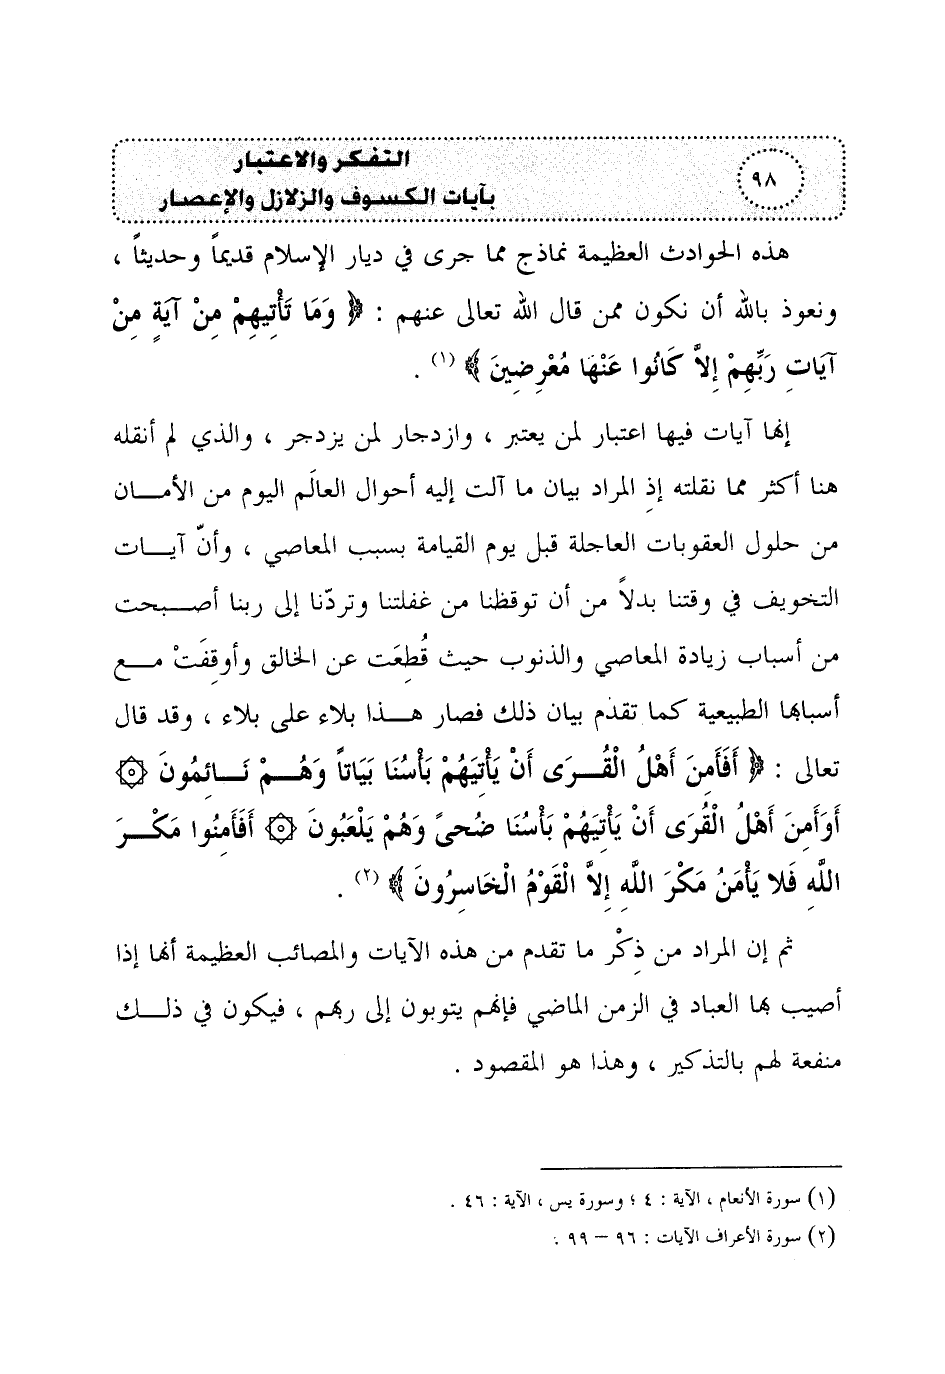 التفكر والاعتبار
بآيات الكسوف والزلازل والإعصار
٩٨
هذه الحوادث العظيمة نماذج مما جرى في ديار الإسلام قديماً وحديثاً ،
ونعوذ بالله أن نكون ممن قال الله تعالى عنهم : ﴿ وَمَا تَأْتِيهِمْ مِنْ آيَةٍ مِنْ
آيَاتِ رَبِّهِمْ إِلاَّ كَانُوا عَنْهَا مُعْرِضِينَ ﴾ (١) .
إنها آيات فيها اعتبار لمن يعتبر ، وازدجار لمن يزدجر ، والذي لم أنقله
هنا أكثر مما نقلته إذِ المراد بيان ما آلت إليه أحوال العالَم اليوم من الأمـــان
من حلول العقوبات العاجلة قبل يوم القيامة بسبب المعاصي ، وأنّ آيـــات
التخويف في وقتنا بدلاً من أن توقظنا من غفلتنا وتردّنا إلى ربنا أصـــبحت
من أسباب زيادة المعاصي والذنوب حيث قُطِعَت عن الخالق وأوقِفَتْ مـــع
أسبابها الطبيعية كما تقدم بيان ذلك فصار هـــذا بلاء على بلاء ، وقد قال
تعالى : ﴿ أَفَأَمِنَ أَهْلُ الْقُـــرَى أَنْ يَأْتِيَهُمْ بَأْسُنَا بَيَاتاً وَهُـــمْ نَـــائِمُونَ ۞
أَوَأَمِنَ أَهْلُ الْقُرَى أَنْ يَأْتِيَهُمْ بَأْسُنَا ضُحىً وَهُمْ يَلْعَبُونَ ۞ أَفَأَمِنُوا مَكْـــرَ
اللَّهِ فَلا يَأْمَنُ مَكْرَ اللَّهِ إِلاَّ الْقَوْمُ الْخَاسِرُونَ ﴾ (٢) .
ثم إن المراد من ذِكْر ما تقدم من هذه الآيات والمصائب العظيمة أنها إذا
أصيب بها العباد في الزمن الماضي فإنهم يتوبون إلى ربهم ، فيكون في ذلـــك
منفعة لهم بالتذكير ، وهذا هو المقصود .
(١) سورة الأنعام ، الآية : ٤ ؛ وسورة يس ، الآية : ٤٦ .
(٢) سورة الأعراف الآيات : ٩٦ – ٩٩ .